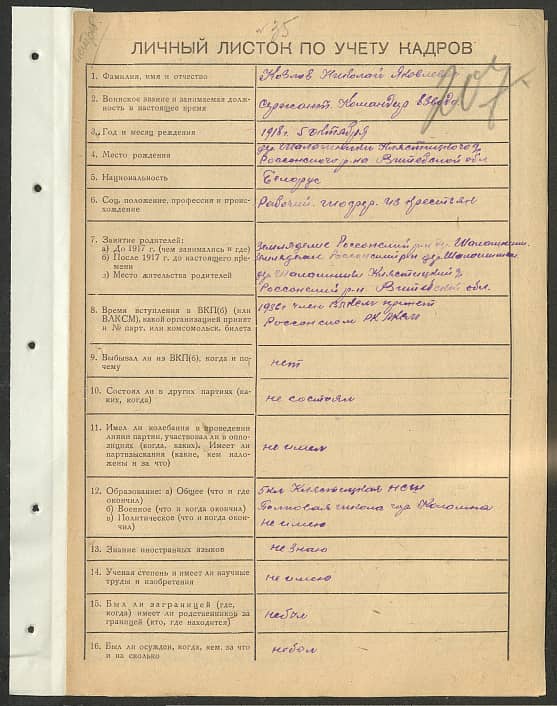 №35
207.
ЛИЧНЫЙ ЛИСТОК ПО УЧЕТУ КАДРОВ
1. Фамилия, имя и отчество
Козлов Николай Яковлевич
2. Воинское звание и занимаемая долж-
ность в настоящее время
Сержант. Командир взвода.
3. Год и месяц рождения
1918 г. 5 октября
4. Место рождения
д. Шалашники Клястицкого
Россонского р-на Витебской обл.
5. Национальность
Белорус
6. Соц. положение, профессия и проис-
хождение
Рабочий. из крестьян
7. Занятие родителей:
а) До 1917 г. (чем занимались и где)
б) После 1917 г. до настоящего вре-
мени
з) Место жительства родителей
Земледелие Россонский р-н д. Шалашники.
Земледелие Россонский р-н дер. Шалашники
д. Шалашники Клястицкий
Россонский р-н. Витебской обл.
8. Время вступления в ВКП(б) (или
ВЛКСМ), какой организацией принят
и № парт. или комсомольск. билета
1936 г член ВЛКСМ принят
Россонским РК ЛКСМ
9. Выбывал ли из ВКП(б), когда и по-
чему
нет
10. Состоял ли в других партиях (ка-
ких, когда)
не состоял
11. Имел ли колебания в проведении
линии партии, участвовал ли в оппо-
зициях (когда, каких). Имеет ли
партвзыскания (какие, кем нало-
жены и за что)
не имел
12. Образование: а) Общее (что и где
окончил)
б) Военное (что и когда окончил)
в) Политическое (что и когда окон-
чил)
Клястицкая НСШ
Полковая школа Коломна
не имею
13. Знание иностранных языков
не знаю
14. Ученая степень и имеет ли научные
труды и изобретения
не имею
15. Был ли заграницей (где,
когда) имеет ли родственников за
границей (кто, где находится)
небыл
16. Был ли осужден, когда, кем, за что
и на сколько
небыл